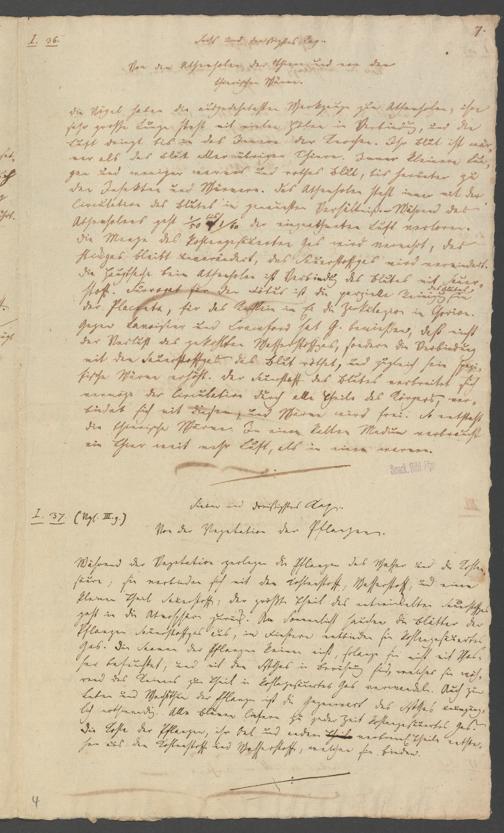 7.
I. 36. Sechs und dreißigstes Kap.
Von dem Athemholen der Thiere und von der
thierischen Wärme.
Die Vögel haben die ausgedehntesten Werkzeuge zum Athemholen, ihre
sehr große Lunge steht mit vielen Höhlen in Verbindung, und die
Luft dringt bis in das Innere der Knochen. Ihr Blut ist wär-
mer als das Blut aller übrigen Thiere. Immer kleinere Lun-
gen und weniger warmes und rothes Blut, bis herunter zu
den Insekten und Würmern. Das Athemholen steht immer mit der
Circulation des Blutes in genauesten Verhältnissen. Während des
Athemholens geht 1/50 bis 1/60 der eingeathmeten Luft verloren.
Die Menge des kohlengesäuerten Gas wird vermehrt, das
Stickgas bleibt unverändert, das Sauerstoffgas wird vermindert.
Die Hauptsache beim Athemholen ist Verbindung des Blutes mit Sauer-
stoff. für den Fötus ist die
der Placenta, für das im Ei die
Gegen Lavoisier und Crawford hat G. bewiesen, daß nicht
der Verlust des gekohlten Wasserstoffgas, sondern die Verbindung
mit dem Sauerstoffgas das Blut röthet, und zugleich seine spezi-
fische Wärme erhöht. Der Sauerstoff des Blutes verbreitet sich
vermöge der Circulation durch alle Theile des Körpers, ver-
bindet sich mit diesen, und Wärme wird frei. So entsteht
die thierische Wärme. In einem kalten Medium verbraucht
ein Thier weit mehr Luft, als in einem warmen.
I. 37. (Vgl. III. g.) Sieben und dreißigstes Kap.
Von der Vegetation der Pflanzen.
Während der Vegetation zerlegen die Pflanzen das Wasser und die Kohlen-
säure; sie verbinden sich mit dem Kohlenstoff, Wasserstoff, und einem
kleinen Theil Sauerstoff; der größte Theil des entwickelten Sauerstoffs
geht in die Atmosphäre zurück. Am Sonnenlicht hauchen die Blätter der
Pflanzen Sauerstoffgas aus, im Finstern entbinden sie kohlengesäuertes
Gas. Die Samen der Pflanzen keimen nicht, solange sie nicht mit Was-
ser befeuchtet, und mit dem in Berührung sind, welches sie wäh-
rend des Keimens zum Theil in kohlengesäuertes Gas verwandeln. Auch zum
Leben und Wachsthum der Pflanze ist die Gegenwart des
nothwendig. Alle Blumen liefern zu jeder Zeit kohlengesäuertes Gas.
Die Säfte der Pflanzen, ihr Oel und andere Theile entste-
hen aus dem Kohlenstoff und Wasserstoff, welchen sie binden.
4